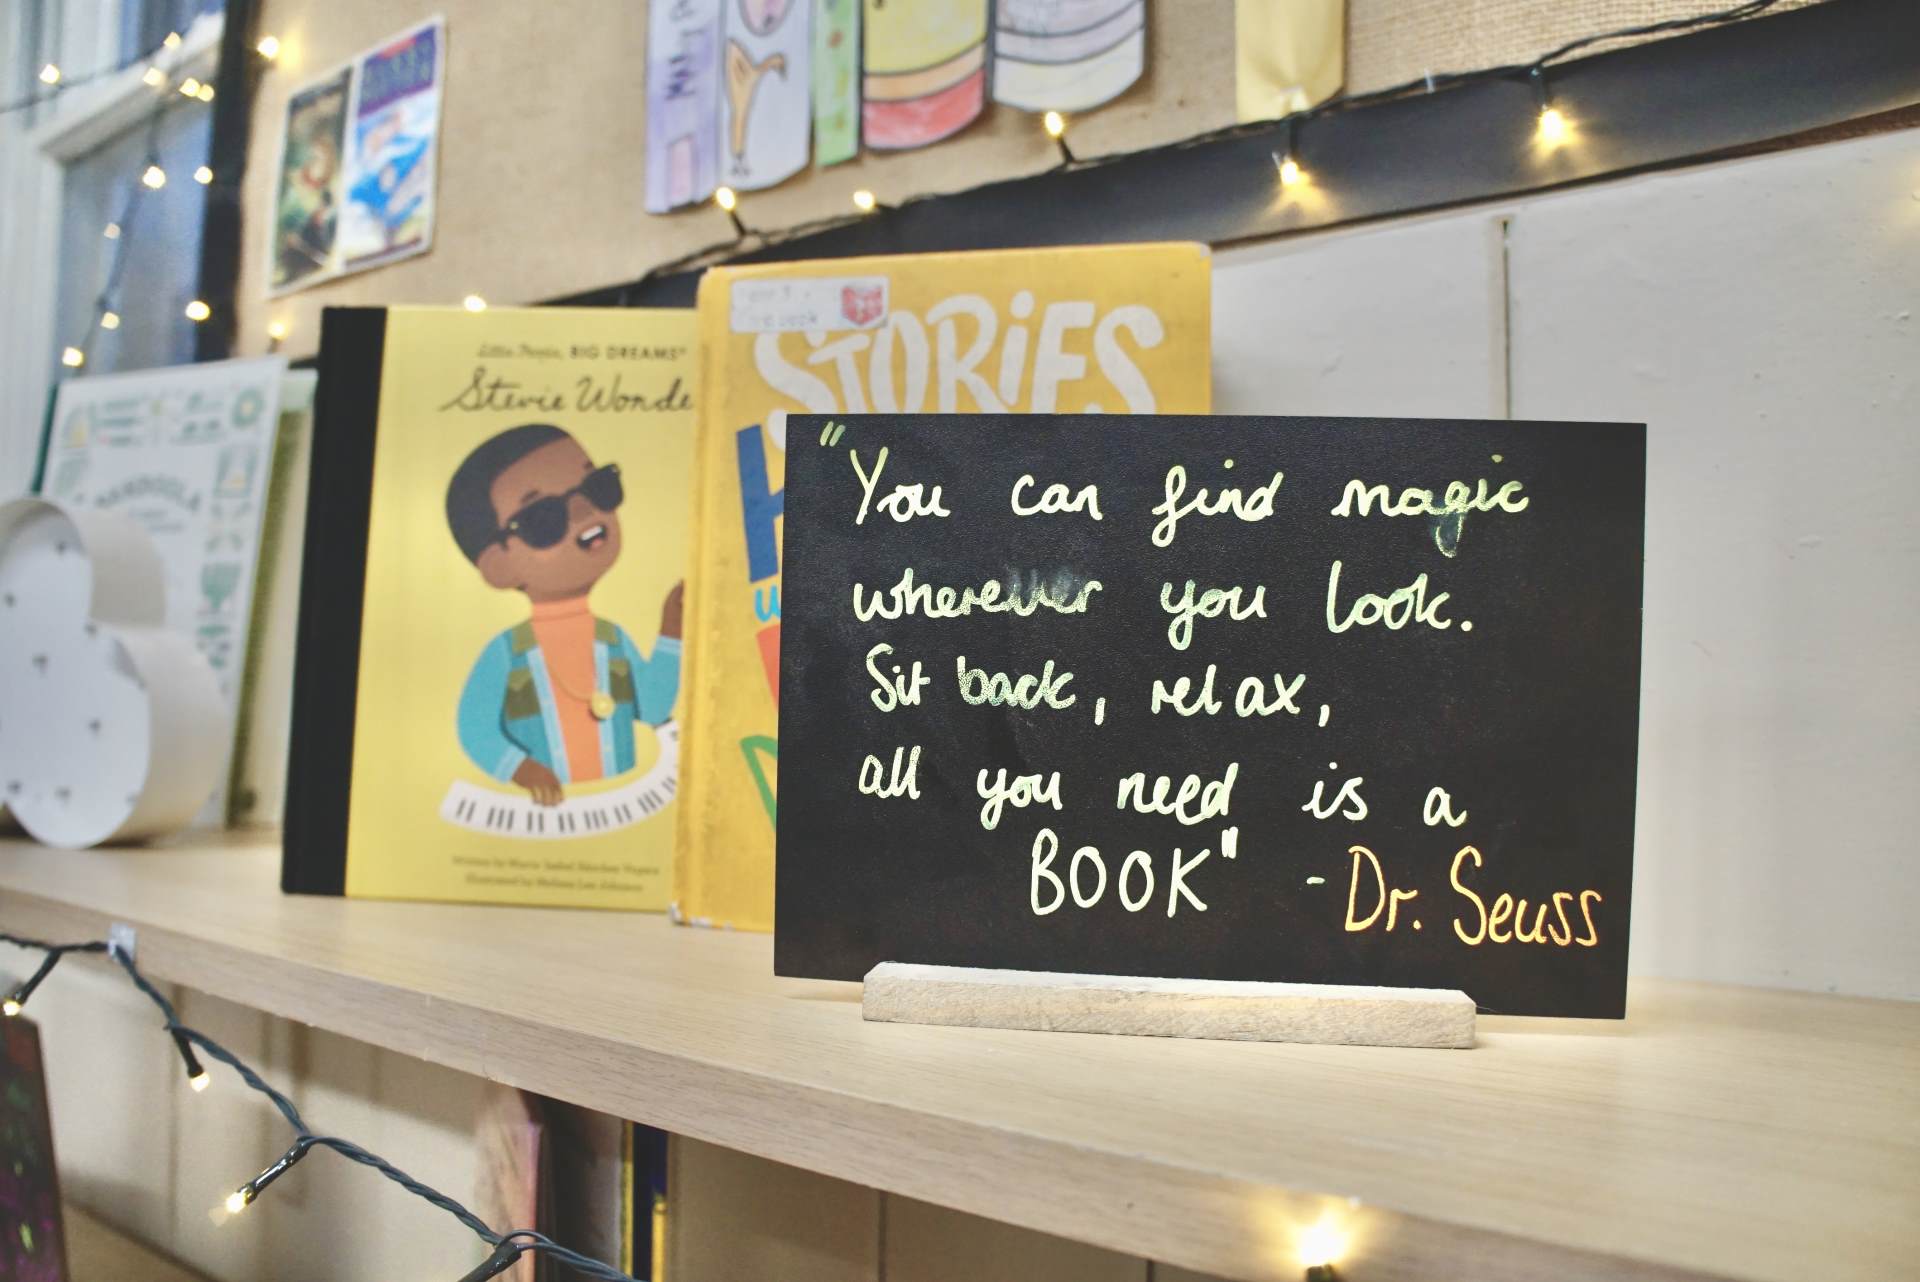 Little People, BIG DREAMS
Stevie Wonde
STORIES
"You can find magic
wherever you look.
Sit back, relax,
all you need is a
BOOK" - Dr. Seuss
Written by Maria Isabel Sánchez Vegara